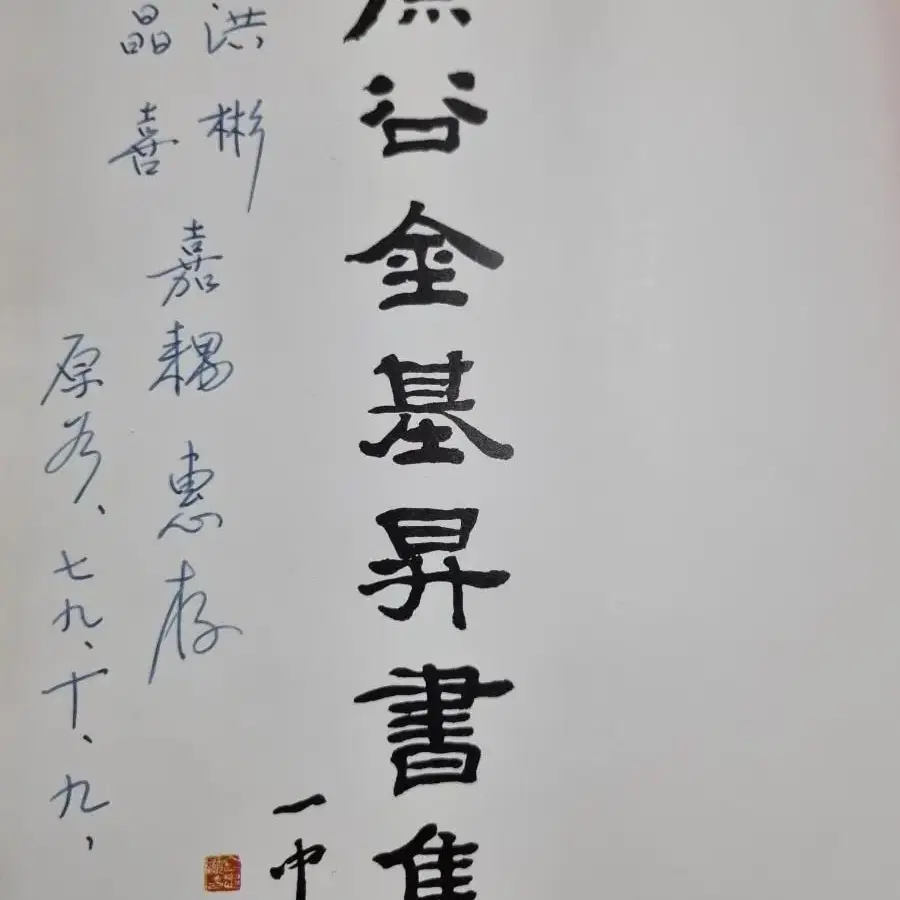 原谷金基昇書集
一中
洪彬
晶喜
嘉耦惠存
原谷、七九、十、九、